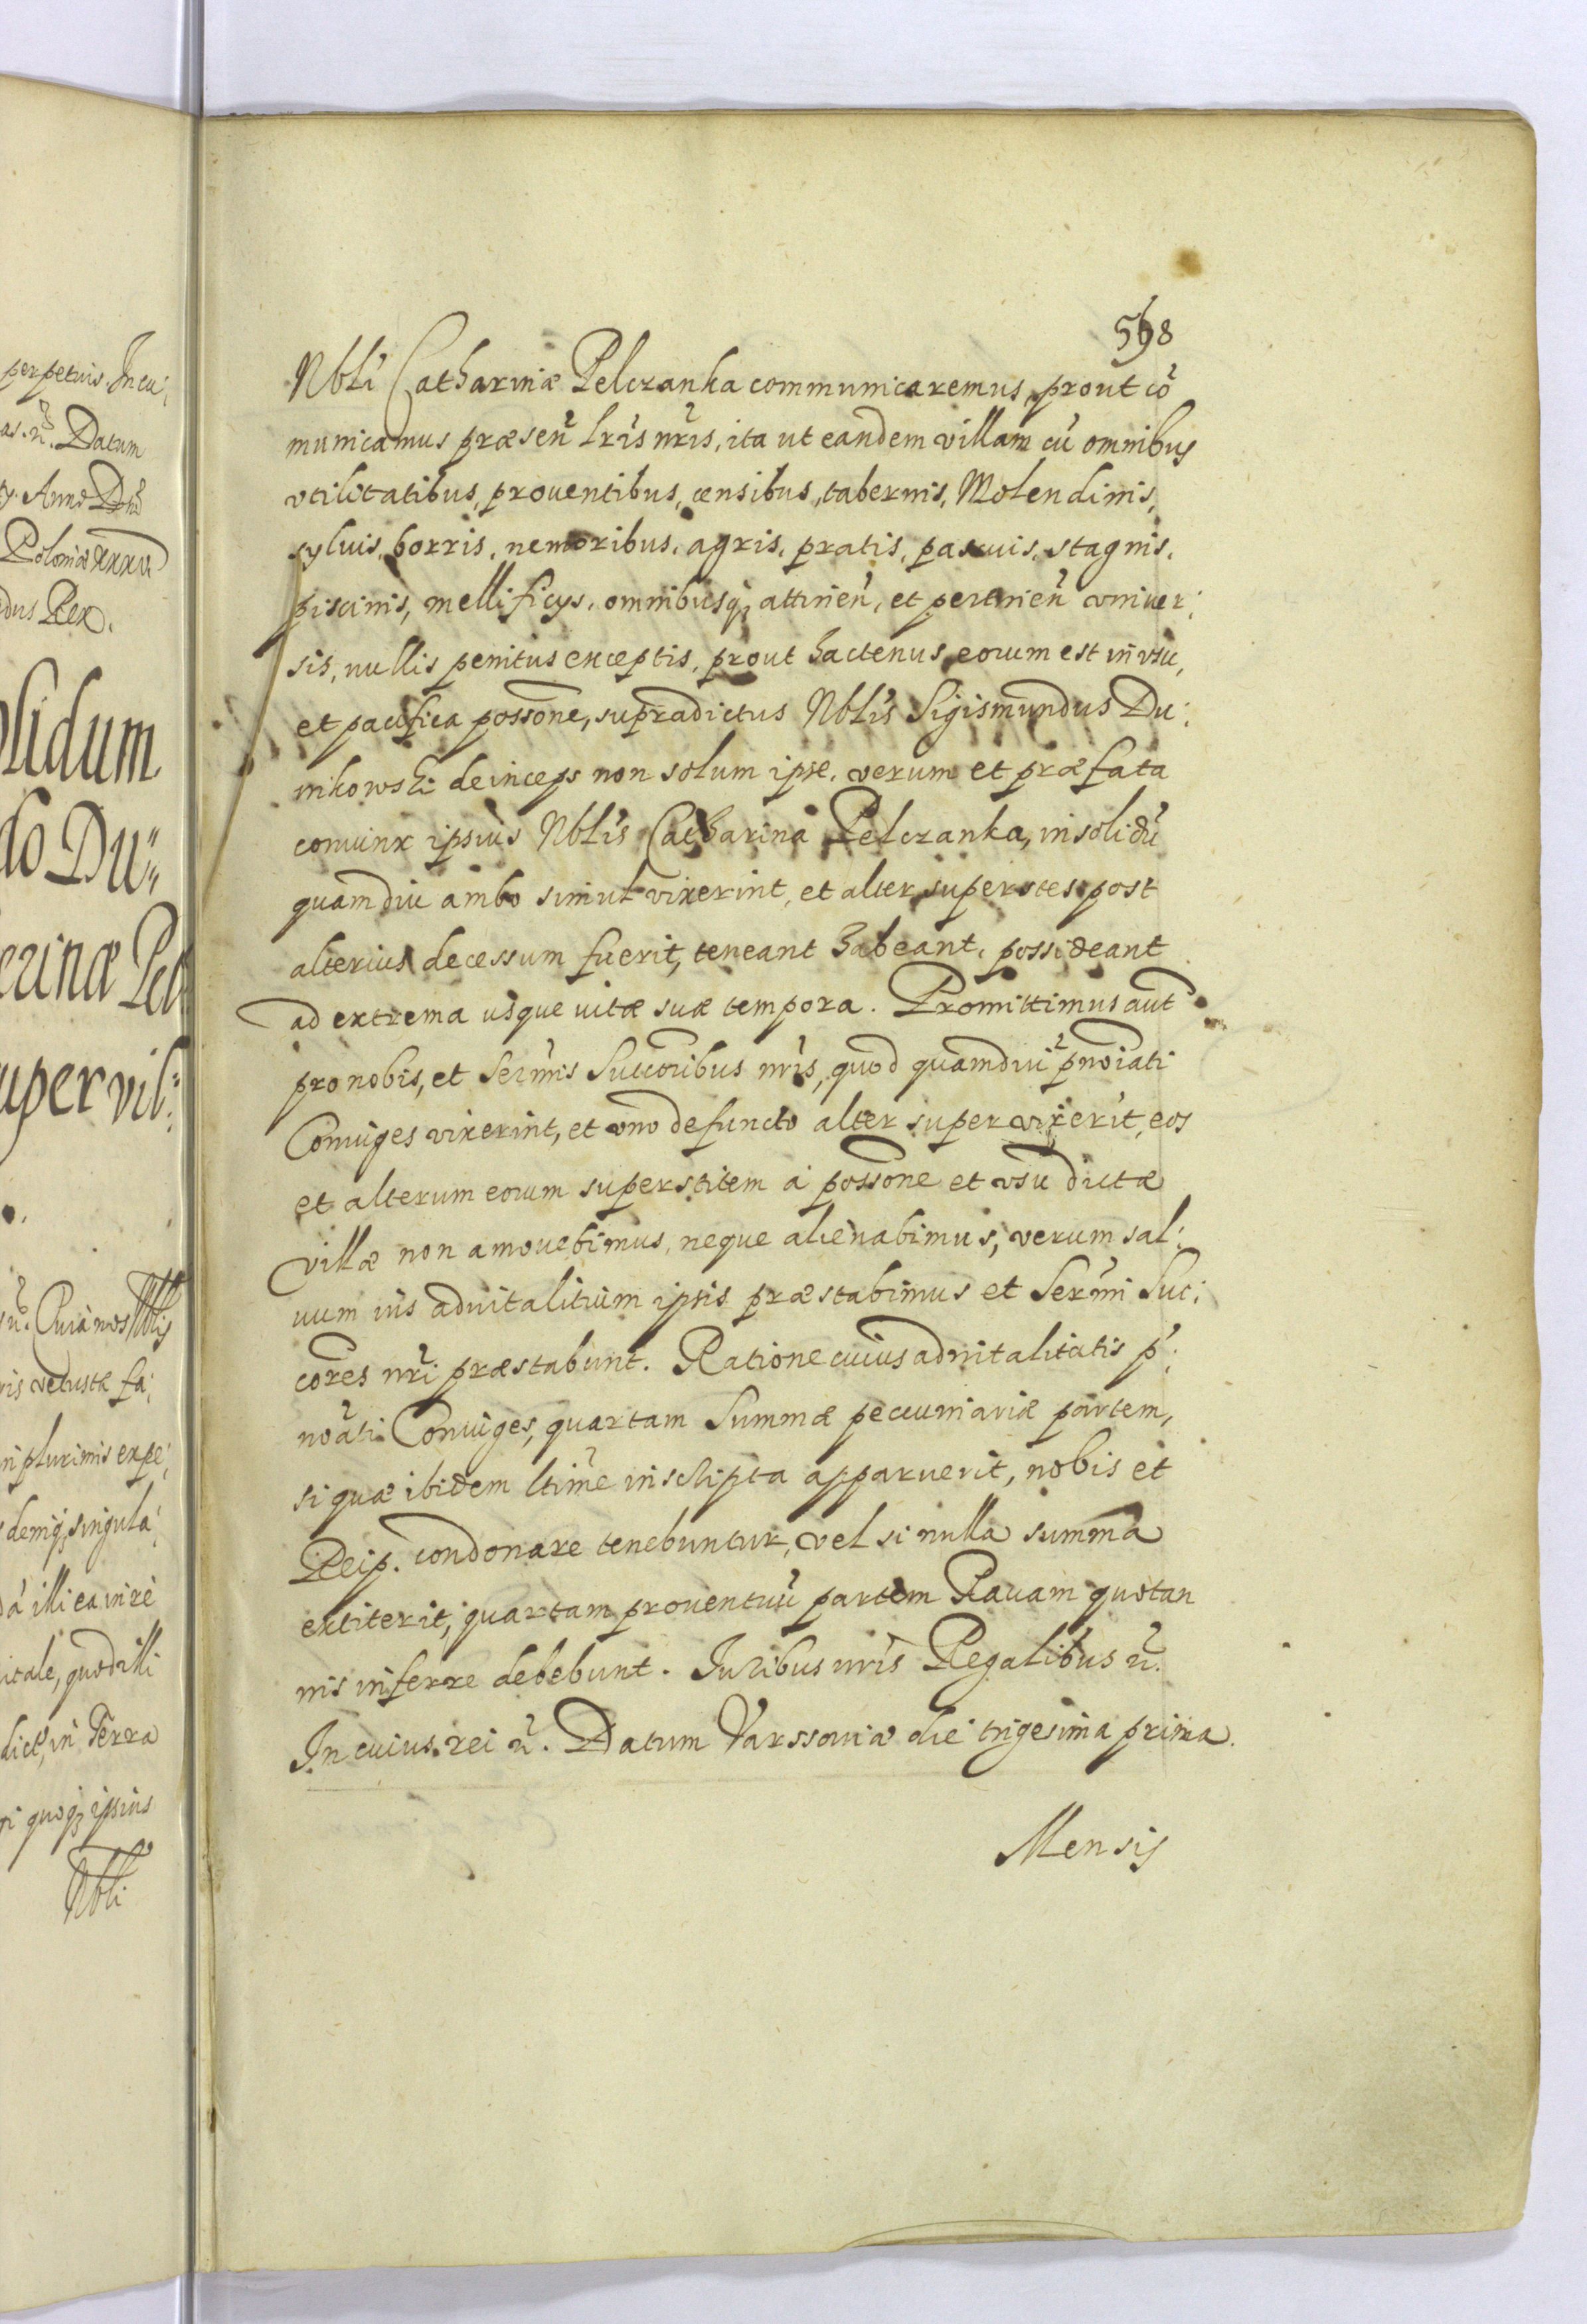 568
Nbli Catharinæ Pelczanka communicaremus, prout cõ
municamus præseñ lris nris, ita ut eandem villam cũ omnibus
vtilitatibus, prouentibus, censibus, tabernis, Molendinis,
syluis, borris, nemoribus, agris, pratis, pascuis, stagnis,
piscinis, mellificys, omnibusq; attineñ, et pertineñ vniuer:
sis, nullis penitus exceptis, prout hactenus eorum est in vsu,
et pacifica possone, supradictus Nblis Sigismundus Du:
nikowski deinceps non solum ipse, verum et præfata
coniunx ipsius Nblis Catharina Pelczanka, in solidũ
quamdiu ambo simul vixerint, et alter superstes post
alterius decessum fuerit, teneant habeant, possideant
ad extrema usque vitæ suæ tempora. Promittimus aut
pro nobis, et Sermis Succoribus nris, quod quamdiu pnoiati
Coniuges vixerint, et vno defuncto alter superuixerit, eos
et alterum eorum superstitem à possone et vsu dictæ
villæ non amouebimus, neque alienabimus, verum sal:
uum ius aduitalitium ipsis præstabimus et Sermi Suc:
cores nri præstabunt. Ratione cuius aduitalitatis p:
noati Coniuges, quartam Summæ pecuniariæ partem,
si quæ ibidem ltime inscripta apparuerit, nobis et
Reip. condonare tenebuntur, vel si nulla summa
extiterit, quartam prouentuũ partem Rauam quotan
nis inferre debebunt. Iuribus nris Regalibus ñ.
In cuius rei ñ. Datum Varssouiæ die trigesima prima.
Mensis
perpetuis. In cu:
as. ñ. Datum
Anno Dni
Poloniæ XXXV
dus Rex.
lidum
do Du:
erinæ Pel
uper vil:
ñ. Quia nos Nblis
ris vetustæ fa:
n plurimis expe:
demq; singula:
à illi ea in re
itale, quod illi
dict, in Terra
ri quoq; ipsius
Nbli